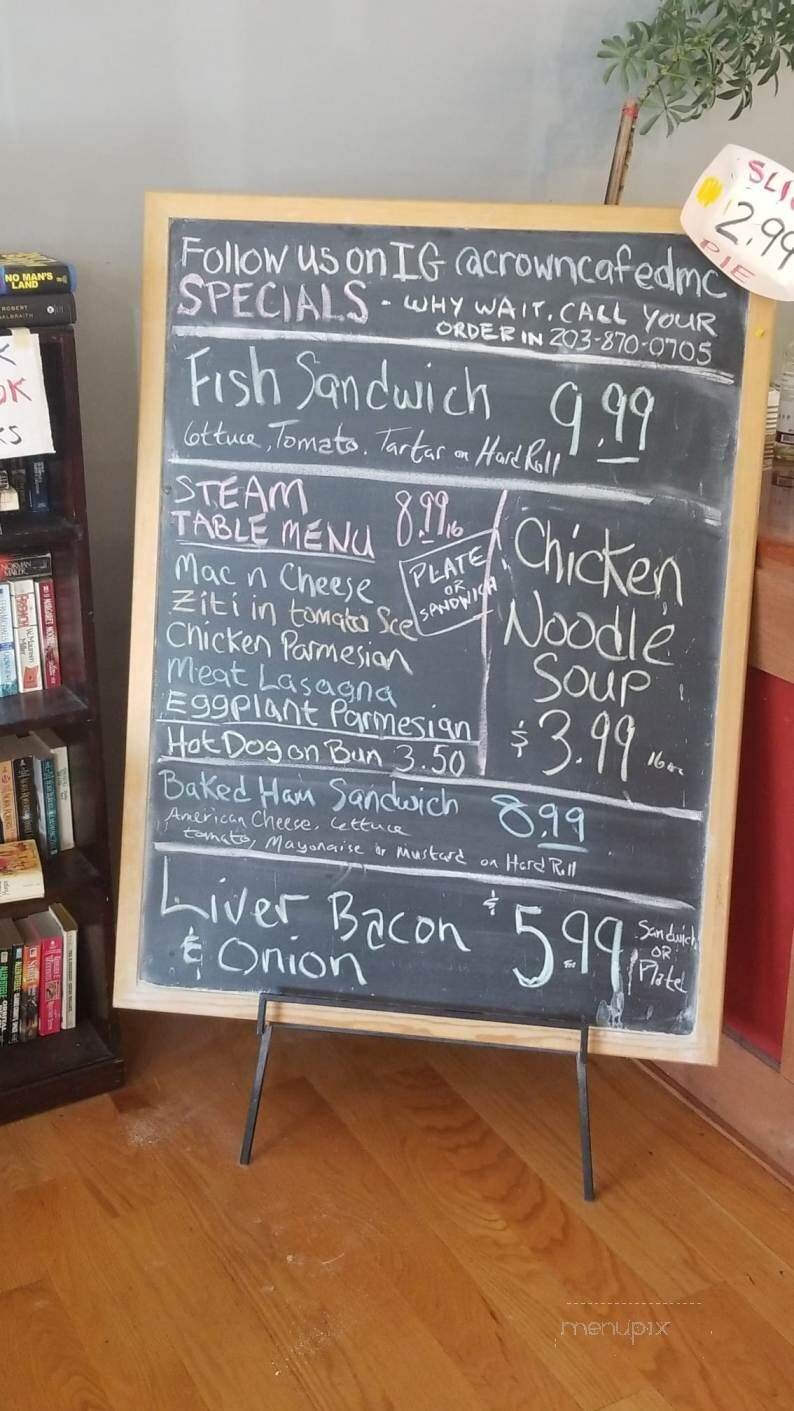 Follow us on IG @crowncafedmc
SPECIALS - WHY WAIT. CALL YOUR
ORDER IN 203-870-0705
Fish Sandwich 9.99
Lettuce, Tomato. Tartar on Hard Roll
STEAM
TABLE MENU 8.99 lb
PLATE
OR
SANDWICH
Mac n Cheese
Ziti in tomato Sce
Chicken Parmesian
Meat Lasagna
Eggplant Parmesian
Hot Dog on Bun 3.50
Chicken
Noodle
Soup
$3.99 16oz
Baked Ham Sandwich 8.99
American Cheese, Lettuce
tomato, Mayonaise or Mustard on Hard Roll
Liver Bacon $5.99
& Onion
Sandwich
OR
Plate
2.99
PIE
NO MAN'S
LAND
ROBERT
NORMAN
MAILER
menupix